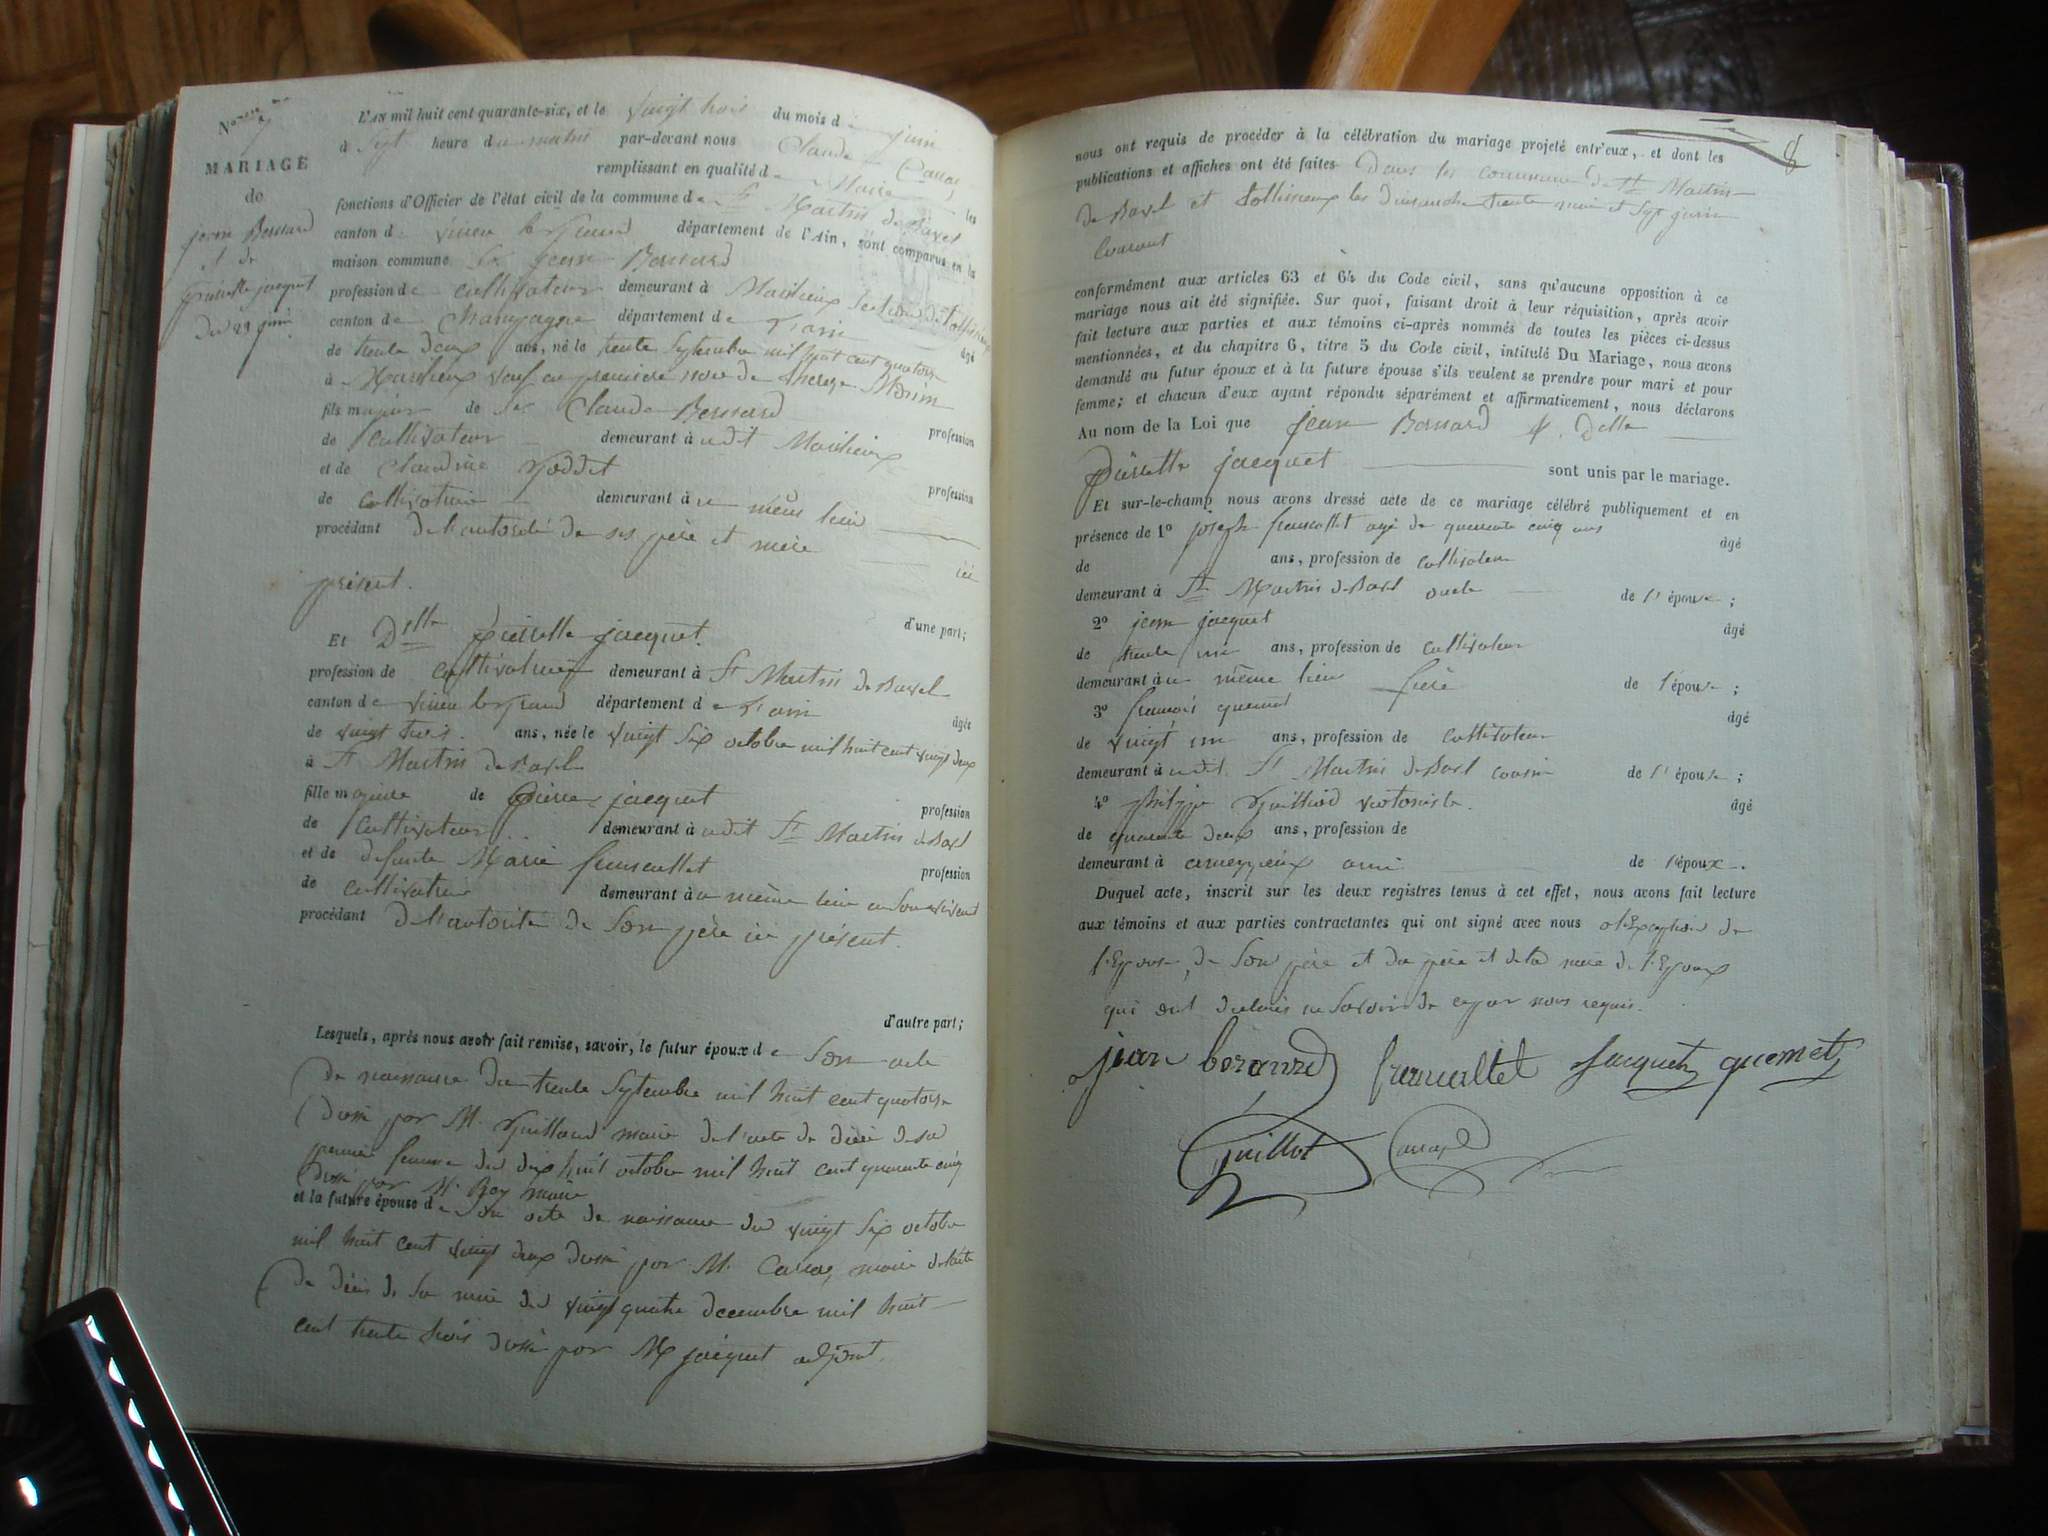 MARIAGE
de
jean Bernard
et de
pierrette jacquet
du 23 juin
L'AN mil huit cent quarante-six, et le vingt trois du mois de juin
à sept heure du matin par-devant nous Claude
remplissant en qualité de Maire les
fonctions d'Officier de l'état civil de la commune de St Martin de Bavel
canton de virieu le grand département de l'Ain, sont comparus en la
maison commune Sr jean Bernard
profession de cultivateur demeurant à
canton de Champagne département de l'ain âgé
de trente deux ans, né le trente Septembre mil huit cent quatorze
à veuf en premiere noce de therese Morin
fils majeur de Sr Claude Bernard profession
de Cultivateur demeurant à udit
et de Claudine profession
de cultivatrice demeurant à u même lieu
procédant de l'autorité de ses père et mère ici
présent.
d'une part;
Et Delle pierrette jacquet.
profession de cultivatrice demeurant à St Martin de Bavel
canton de virieu le grand département de l'ain âgée
de vingt trois ans, née le vingt six octobre mil huit cent vingt deux
à St Martin de Bavel
fille majeure de Pierre jacquet profession
de Cultivateur demeurant à udit St Martin de Bavel
et de defunte Marie profession
de cultivatrice demeurant à u même lieu en son vivant
procédant de l'autorité de Son père ici présent.
d'autre part;
Lesquels, après nous avoir fait remise, savoir, le futur époux de Son acte
de naissance du trente Septembre mil huit cent quatorze
Dressé par M. maire de l'acte de décès de sa
premiere femme du dix huit octobre mil huit cent quarante cinq
Dressé par M. Rey maire
et la future épouse de Son acte de naissance du vingt Six octobre
mil huit cent vingt deux dressé par M. maire de l'acte
de décès de sa mère du vingt quatre decembre mil huit
cent trente trois dressé par M jacquet adjoint.
8
nous ont requis de procéder à la célébration du mariage projeté entr'eux, et dont les
publications et affiches ont été faites Dans les commune de St Martin
de Bavel et les dimanche trente mai et Sept juin
Courant
conformément aux articles 63 et 64 du Code civil, sans qu'aucune opposition à ce
mariage nous ait été signifiée. Sur quoi, faisant droit à leur réquisition, après avoir
fait lecture aux parties et aux témoins ci-après nommés de toutes les pièces ci-dessus
mentionnées, et du chapitre 6, titre 5 du Code civil, intitulé Du Mariage, nous avons
demandé au futur époux et à la future épouse s'ils veulent se prendre pour mari et pour
femme; et chacun d'eux ayant répondu séparément et affirmativement, nous déclarons
Au nom de la Loi que jean Bernard & Delle
Pierrette jacquet sont unis par le mariage.
Et sur-le-champ nous avons dressé acte de ce mariage célébré publiquement et en
présence de 1º joseph agé de quarante cinq ans âgé
de ans, profession de cultivateur
demeurant à St Martin de Bavel oncle de l'épouse;
2º jean jacquet âgé
de trente un ans, profession de cultivateur
demeurant à u même lieu frère de l'épouse;
3º françois âgé
de vingt un ans, profession de cultivateur
demeurant à udit St Martin de Bavel cousin de l'épouse;
4º philippe âgé
de quarante deux ans, profession de
demeurant à ami de l'époux.
Duquel acte, inscrit sur les deux registres tenus à cet effet, nous avons fait lecture
aux témoins et aux parties contractantes qui ont signé avec nous à l'Exception de
l'Epouse, de Son père et du père et de la mère de l'Epoux
qui ont declarés ne Savoir de ce par nous requis.
jean Jacquet
Guillot